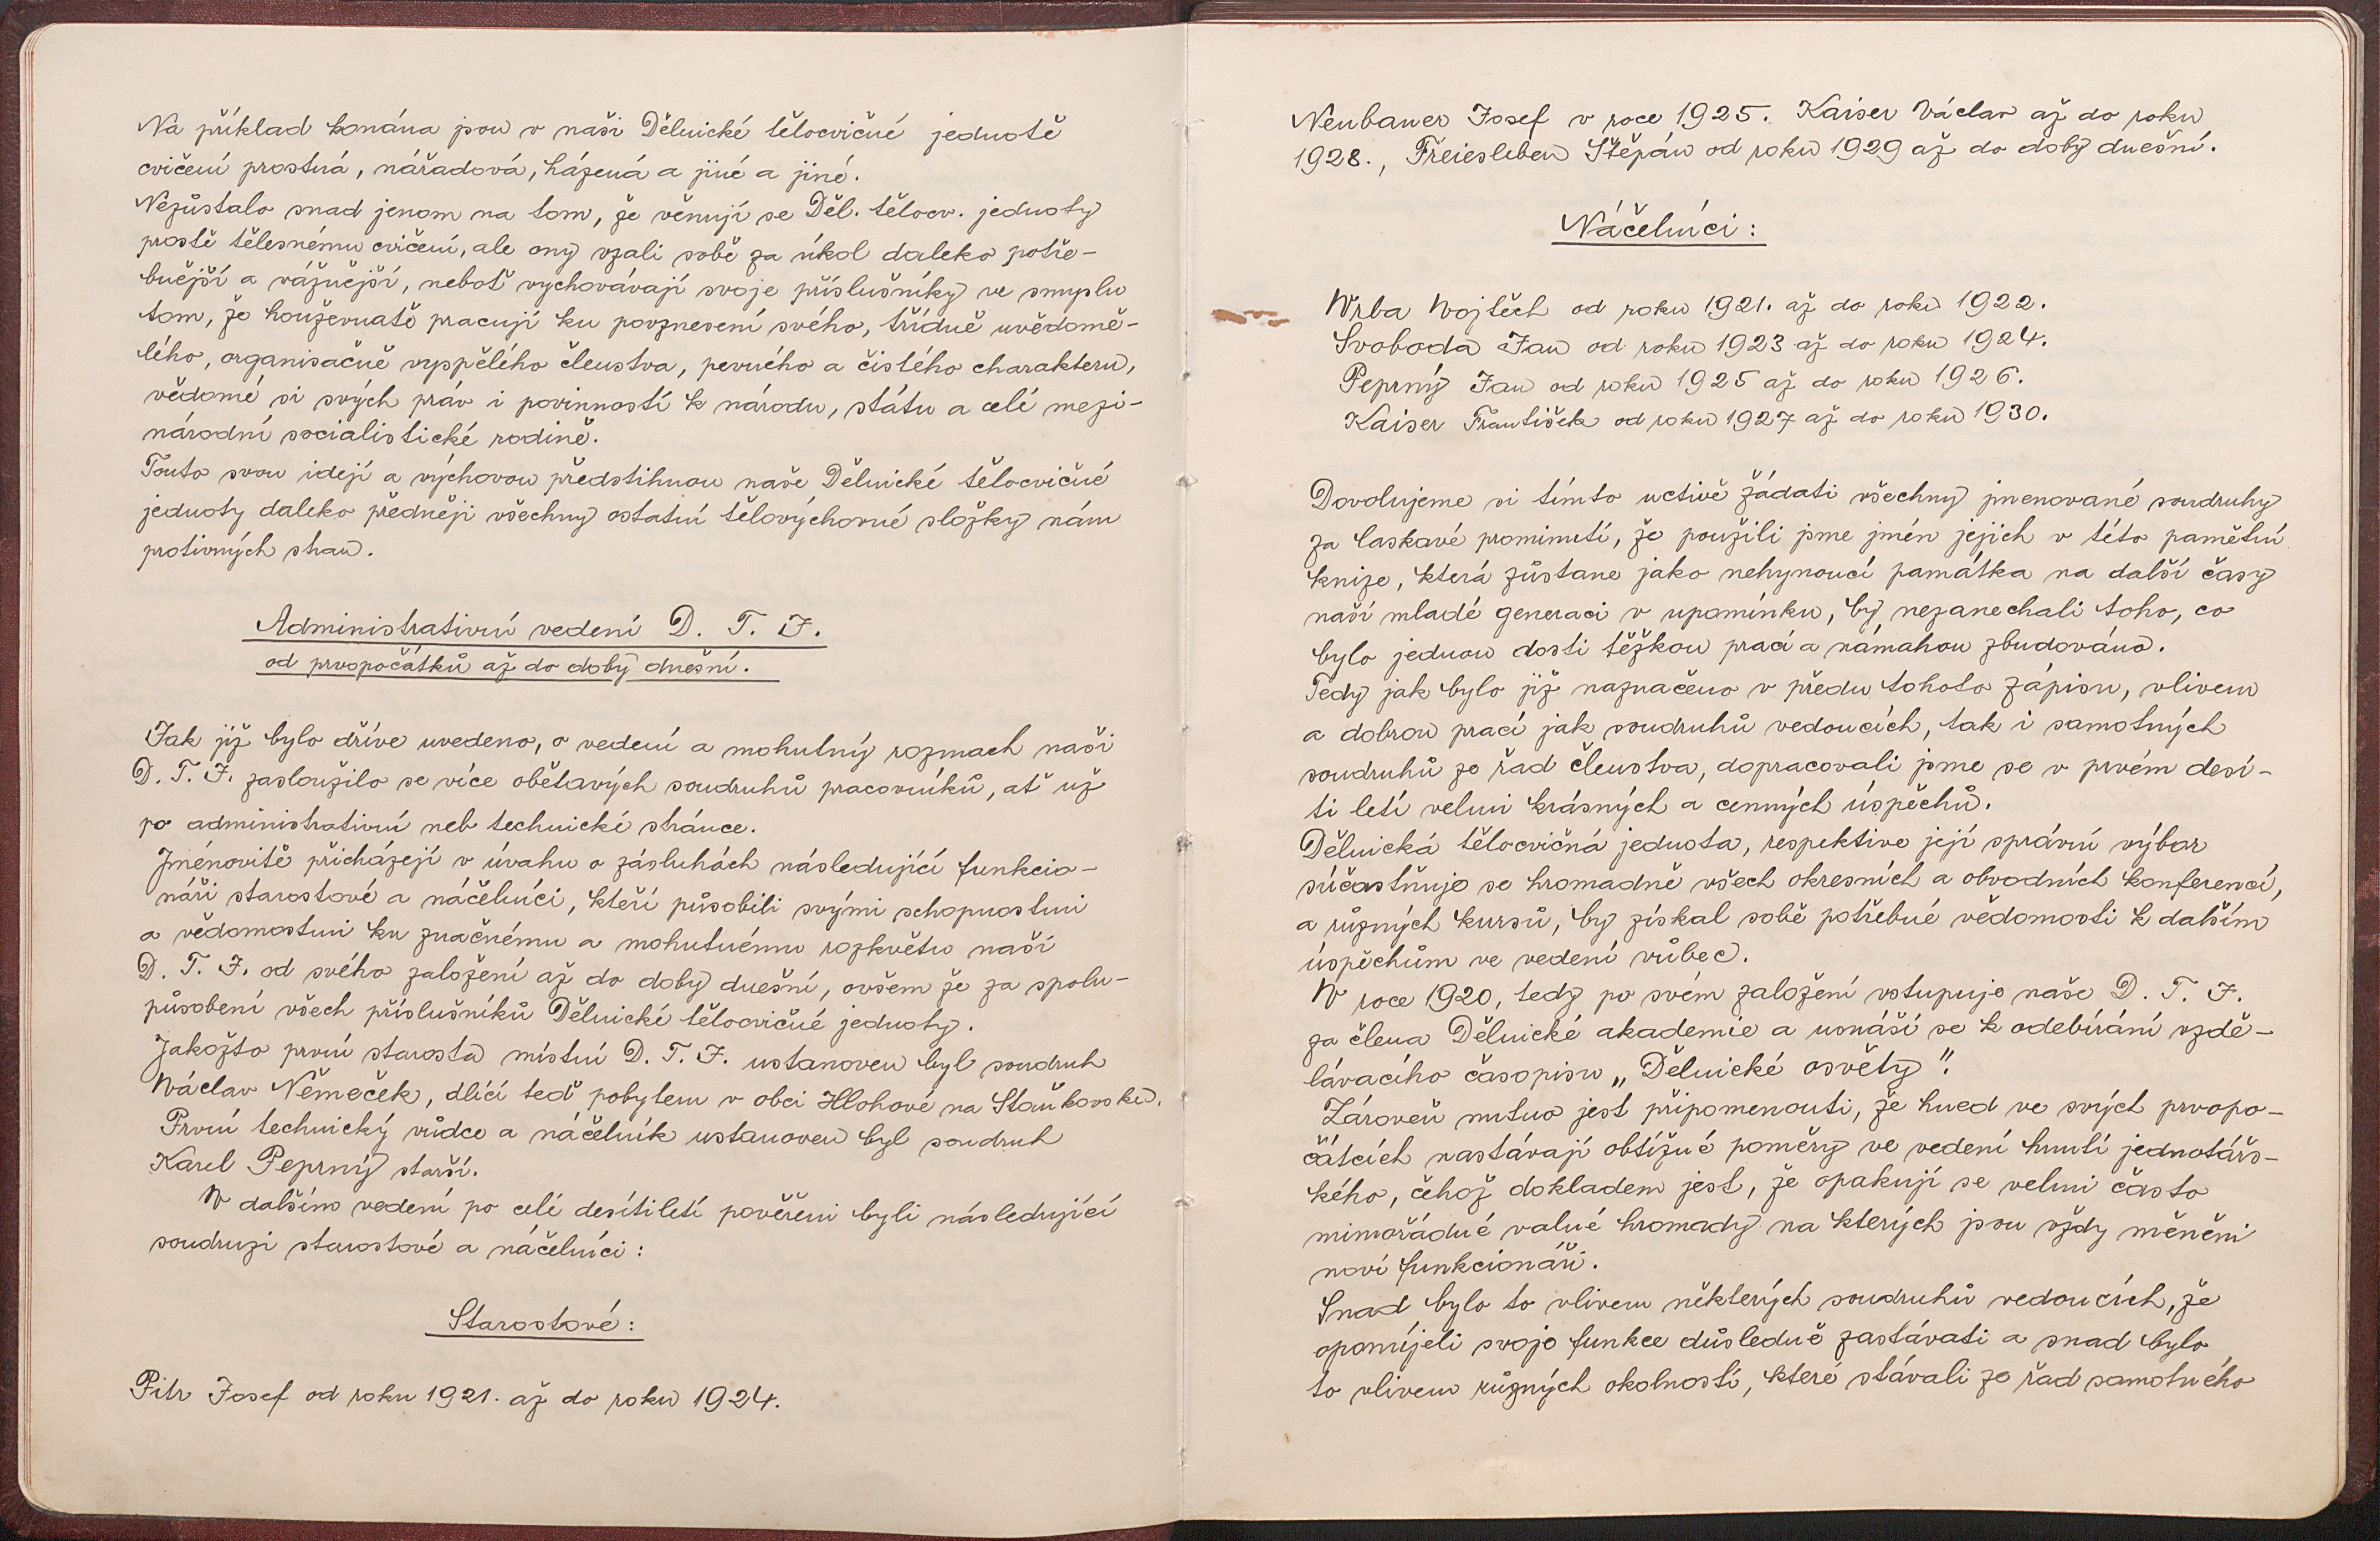 Na příklad konána jsou v naši Dělnické tělocvičné jednotě
cvičení prostná, nářadová, házená a jiné a jiné.
Nezůstalo snad jenom na tom, že věnují se Děl. tělocv. jednoty
prostě tělesnému cvičení, ale ony vzali sobě za úkol daleko potře-
bnější a vážnější, neboť vychovávají svoje příslušníky ve smyslu
tom, že houževnatě pracují ku povznesení svého, třídně uvědomě-
lého, organisačně vyspělého členstva, pevného a čistého charakteru,
vědomé si svých práv i povinností k národu, státu a celé mezi-
národní socialistické rodině.
Touto svou idejí a výchovou předstihnou naše Dělnické tělocvičné
jednoty daleko předněji všechny ostatní tělovýchovné složky nám
protivných stran.
Administrativní vedení D. T. J.
od prvopočátků až do doby dnešní.
Jak již bylo dříve uvedeno, o vedení a mohutný rozmach naši
D. T. J. zasloužilo se více obětavých soudruhů pracovníků, ať už
po administrativní neb technické stránce.
Jménovitě přicházejí v úvahu o zásluhách následující funkcio-
náři starostové a náčelníci, kteří působili svými schopnostmi
a vědomostmi ku značnému a mohutnému rozkvětu naší
D. T. J. od svého založení až do doby dnešní, ovšem že za spolu-
působení všech příslušníků Dělnické tělocvičné jednoty.
Jakožto první starosta místní D. T. J. ustanoven byl soudruh
Václav Němeček, dlící teď pobytem v obci Hlohové na Staňkovsku.
První technický vůdce a náčelník ustanoven byl soudruh
Karel Peprný starší.
V dalším vedení po celé desítiletí pověřeni byli následující
soudruzi starostové a náčelníci:
Starostové:
Pitr Josef od roku 1921. až do roku 1924.
Neubauer Josef v roce 1925. Kaiser Václav až do roku
1928., Freiesleben Štěpán od roku 1929 až do doby dnešní.
Náčelníci:
Vrba Vojtěch od roku 1921. až do roku 1922.
Svoboda Jan od roku 1923 až do roku 1924.
Peprný Jan od roku 1925 až do roku 1926.
Kaiser František od roku 1927 až do roku 1930.
Dovolujeme si tímto uctivě žádati všechny jmenované soudruhy
za laskavé prominutí, že použili jsme jmén jejich v této pamětní
knize, která zůstane jako nehynoucí památka na další časy
naší mladé generaci v upomínku, by nezanechali toho, co
bylo jednou dosti těžkou prací a námahou zbudováno.
Tedy jak bylo již naznačeno v předu tohoto zápisu, vlivem
a dobrou prací jak soudruhů vedoucích, tak i samotných
soudruhů ze řad členstva, dopracovali jsme se v prvém desí-
ti letí velmi krásných a cenných úspěchů.
Dělnická tělocvičná jednota, respektive její správní výbor
súčastňuje se hromadně všech okresních a obvodních konferencí,
a různých kursů, by získal sobě potřebné vědomosti k dalším
úspěchům ve vedení vůbec.
V roce 1920, tedy po svém založení vstupuje naše D. T. J.
za člena Dělnické akademie a usnáší se k odebírání vzdě-
lávacího časopisu „Dělnické osvěty".
Zároveň nutno jest připomenouti, že hned ve svých prvopo-
čátcích nastávají obtížné poměry ve vedení hnutí jednotářs-
kého, čehož dokladem jest, že opakují se velmi často
mimořádné valné hromady na kterých jsou vždy měněni
noví funkcionáři.
Snad bylo to vlivem některých soudruhů vedoucích, že
opomíjeli svoje funkce důsledně zastávati a snad bylo
to vlivem různých okolností, které stávali ze řad samotného